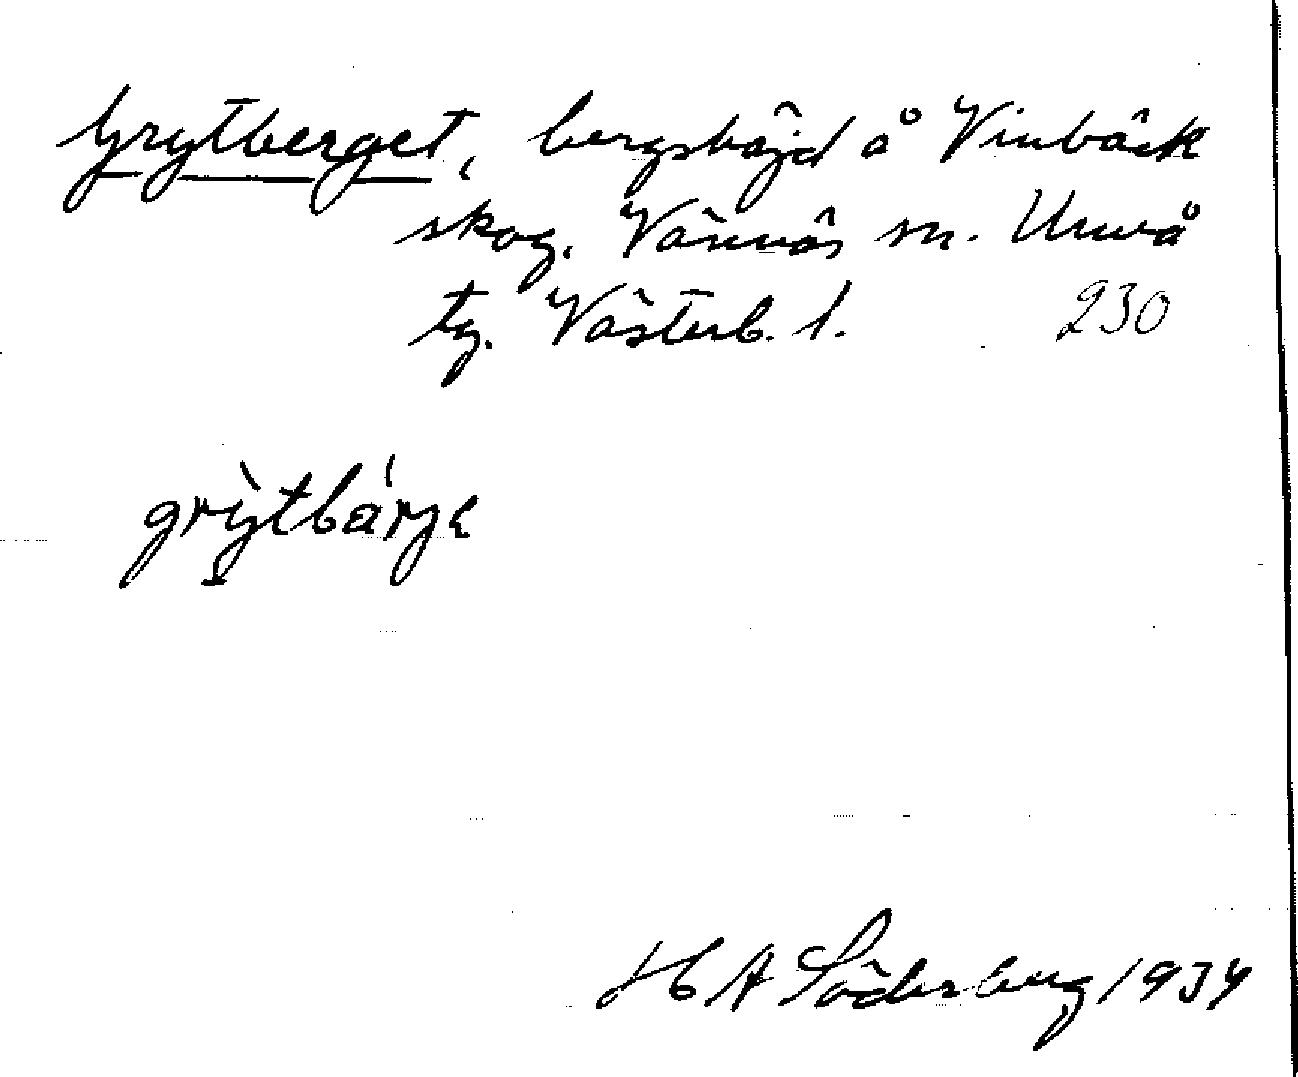 Grytberget, bergshöjd å Vinbäck
skog. Vännäs sn. Umeå
tg. Västerb. l. 230
grỳtbárje
H A Söderberg 1934